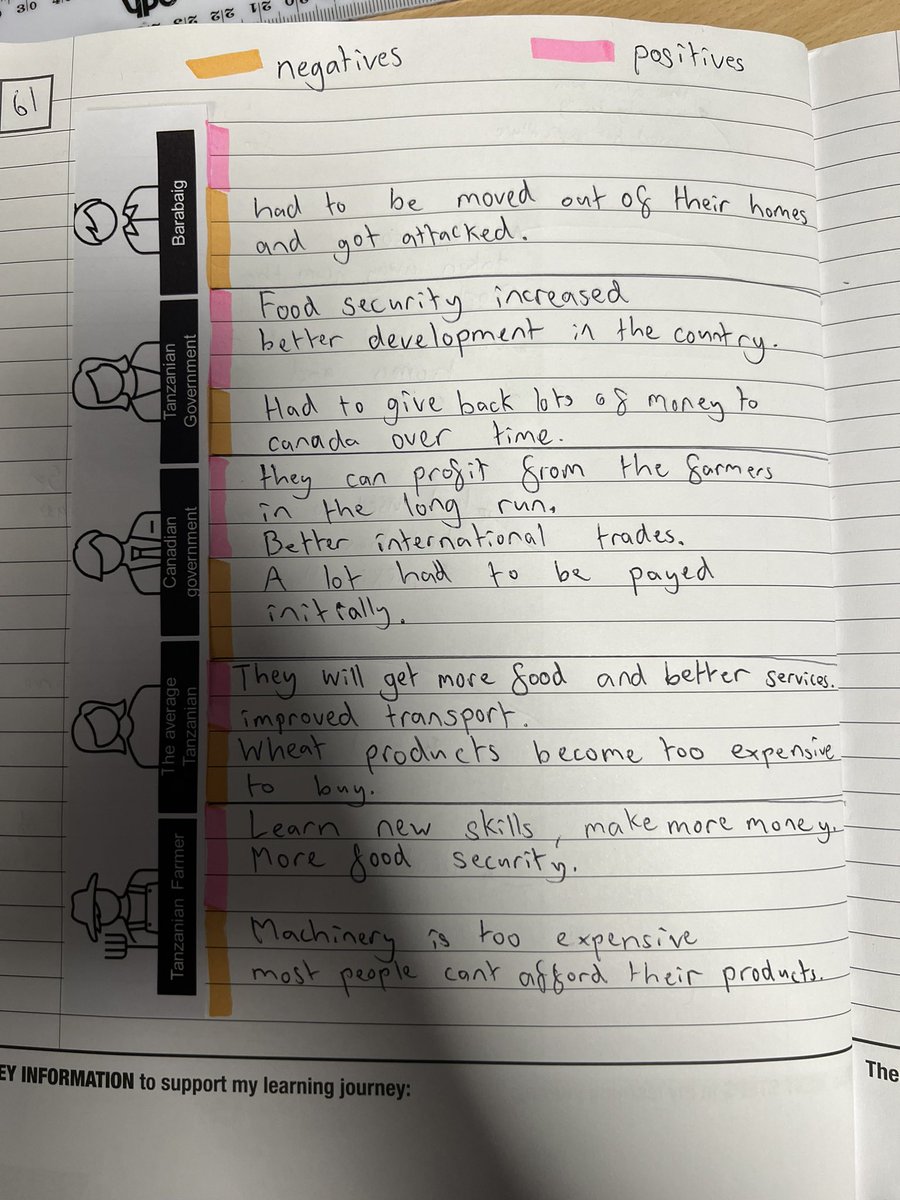 negatives
positives
61
Barabaig
had to be moved out of their homes
and got attacked.
Tanzanian
Government
Food security increased
better development in the country.
Had to give back lots of money to
canada over time.
Canadian
government
they can profit from the farmers
in the long run.
Better international trades.
A lot had to be payed
initially.
The average
Tanzanian
They will get more food and better services.
improved transport.
Wheat products become too expensive
to buy.
Tanzanian Farmer
Learn new skills, make more money.
More food security.
Machinery is too expensive
most people cant afford their products.
EY INFORMATION to support my learning journey:
The